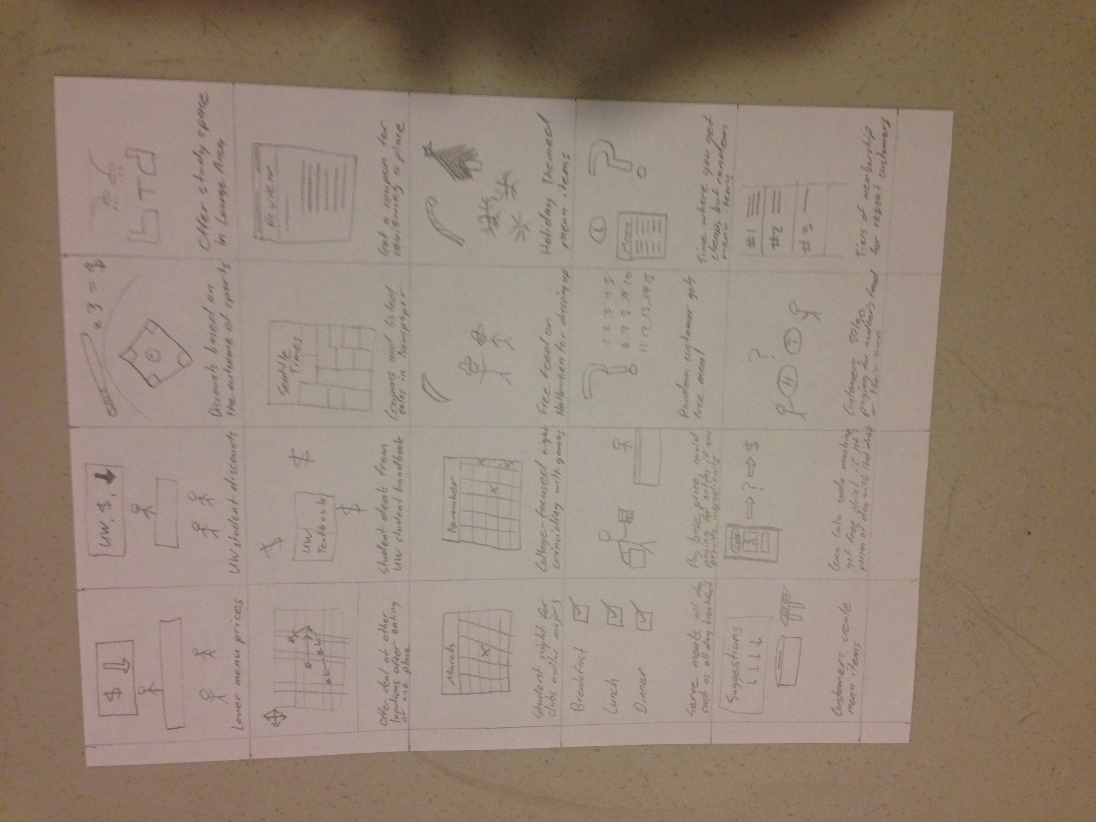 $
Lower menu prices
UW, $,
UW student discounts
x 3 = $
Discounts based on
the outcome of sports
Offer study space
in Lounge Area
$
Offer deal at other
locations after eating
at one place
$
UW
Textbook
$
$
Student deals from
UW student handbook
Seattle
Times
Coupons and listed
sales in newspaper
Review
Get a coupon for
reviewing a place
March
X
Student night for
clubs and/or majors
November
X
X
X
College-focused night
coinciding with games
Free food on
Halloween for dressing up
Holiday Themed
menu items
Breakfast
Lunch
Dinner
Serve meals all day
such as all day breakfast
Pay base price,
1 2 3 4 5
6 7 8 9 10
11 12 13 14 15
Random customer gets
free meal
?
Menu
Time where you get
cheap, but random
menu items
Suggestions
Customers create
menu items
? $
?
Customers
paying for another's food
or their own
#1
#2
#3
Tiers of membership
for repeat customers